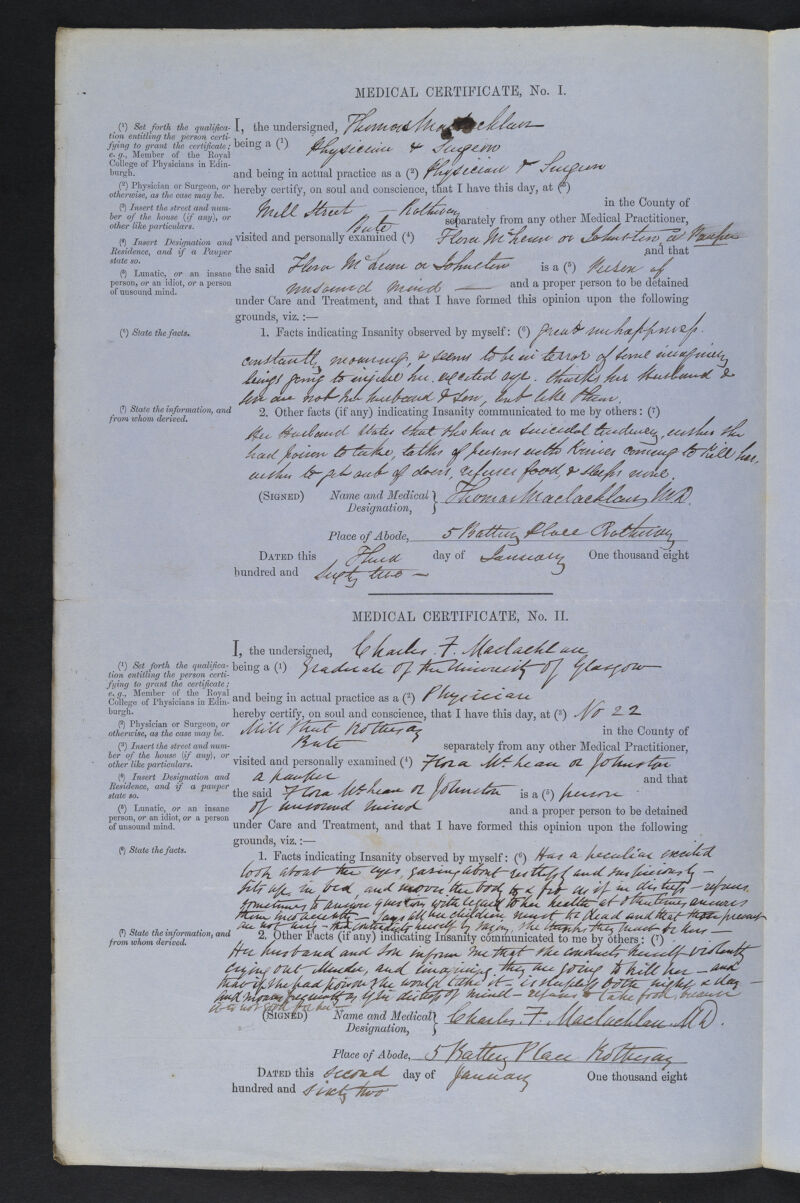 MEDICAL CERTIFICATE, No. I.
(¹) Set forth the qualifica-
tion entitling the person certi-
fying to grant the certificate;
e. g., Member of the Royal
College of Physicians in Edin-
burgh.
(²) Physician or Surgeon, or
otherwise, as the case may be.
(³) Insert the street and num-
ber of the house (if any), or
other like particulars.
(⁴) Insert Designation and
Residence, and if a Pauper
state so.
(⁵) Lunatic, or an insane
person, or an idiot, or a person
of unsound mind.
(⁶) State the facts.
(⁷) State the information, and
from whom derived.
I, the undersigned, Thomas Maclachlan
being a (¹) Physician & Surgeon
and being in actual practice as a (²) Physician & Surgeon
hereby certify, on soul and conscience, that I have this day, at (³)
Mill Street – Rothesay in the County of
Bute separately from any other Medical Practitioner,
visited and personally examined (⁴) Flora McLean or Johnston a Pauper
and that
the said Flora McLean or Johnston is a (⁵) Person of
unsound mind — and a proper person to be detained
under Care and Treatment, and that I have formed this opinion upon the following
grounds, viz. :—
1. Facts indicating Insanity observed by myself: (⁶) great unhappiness.
constantly moaning, & seems to be in terror of some imaginary
beings going to injure her. excited eye. thinks her Husband &
son are not her husband & son, but like them.
2. Other facts (if any) indicating Insanity communicated to me by others: (⁷)
Her Husband states that she has a suicidal tendency, wishes she
had poison to take, talks of persons with Knives coming to Kill her,
wishes to get out of doors, refuses food, & sleeps none.
(SIGNED) Name and Medical Designation, Thomas Maclachlan M.D.
Place of Abode, 5 Battery Place Rothesay
DATED this Third day of January One thousand eight
hundred and Sixty two —
MEDICAL CERTIFICATE, No. II.
(¹) Set forth the qualifica-
tion entitling the person certi-
fying to grant the certificate;
e. g., Member of the Royal
College of Physicians in Edin-
burgh.
(²) Physician or Surgeon, or
otherwise, as the case may be.
(³) Insert the street and num-
ber of the house (if any), or
other like particulars.
(⁴) Insert Designation and
Residence, and if a pauper
state so.
(⁵) Lunatic, or an insane
person, or an idiot, or a person
of unsound mind.
(⁶) State the facts.
(⁷) State the information, and
from whom derived.
I, the undersigned, Charles F. Maclachlan
being a (¹) Graduate of the University of Glasgow
and being in actual practice as a (²) Physician
hereby certify, on soul and conscience, that I have this day, at (³) No 22
Mill Street Rothesay in the County of
Bute separately from any other Medical Practitioner,
visited and personally examined (⁴) Flora McLean or Johnston
a pauper and that
the said Flora McLean or Johnston is a (⁵) person
of unsound mind and a proper person to be detained
under Care and Treatment, and that I have formed this opinion upon the following
grounds, viz. :—
1. Facts indicating Insanity observed by myself: (⁶) Has a peculiar excited
look about the eyes, gazing about restless and suspiciously –
sits up in bed, and moves the body to & fro as if in distress – refuses
sometimes to answer question with regard to her health at other times answers
them – says all her children must be dead and that present
are not hers – contradicts herself by saying, she thinks they must be hers –
2. Other Facts (if any) indicating Insanity communicated to me by others: (⁷)
Her husband and son inform me that she conducts herself violently
crying out Murder, and imagining they are going to kill her – and
that if she had poison she would take it – is sleepless both night & day –
and moans frequently as if in distress of mind – refuses to take food, because
it is not good for her –
(SIGNED) Name and Medical Designation, Charles F. Maclachlan M.D.
Place of Abode, 5 Battery Place Rothesay
DATED this second day of January One thousand eight
hundred and sixty two